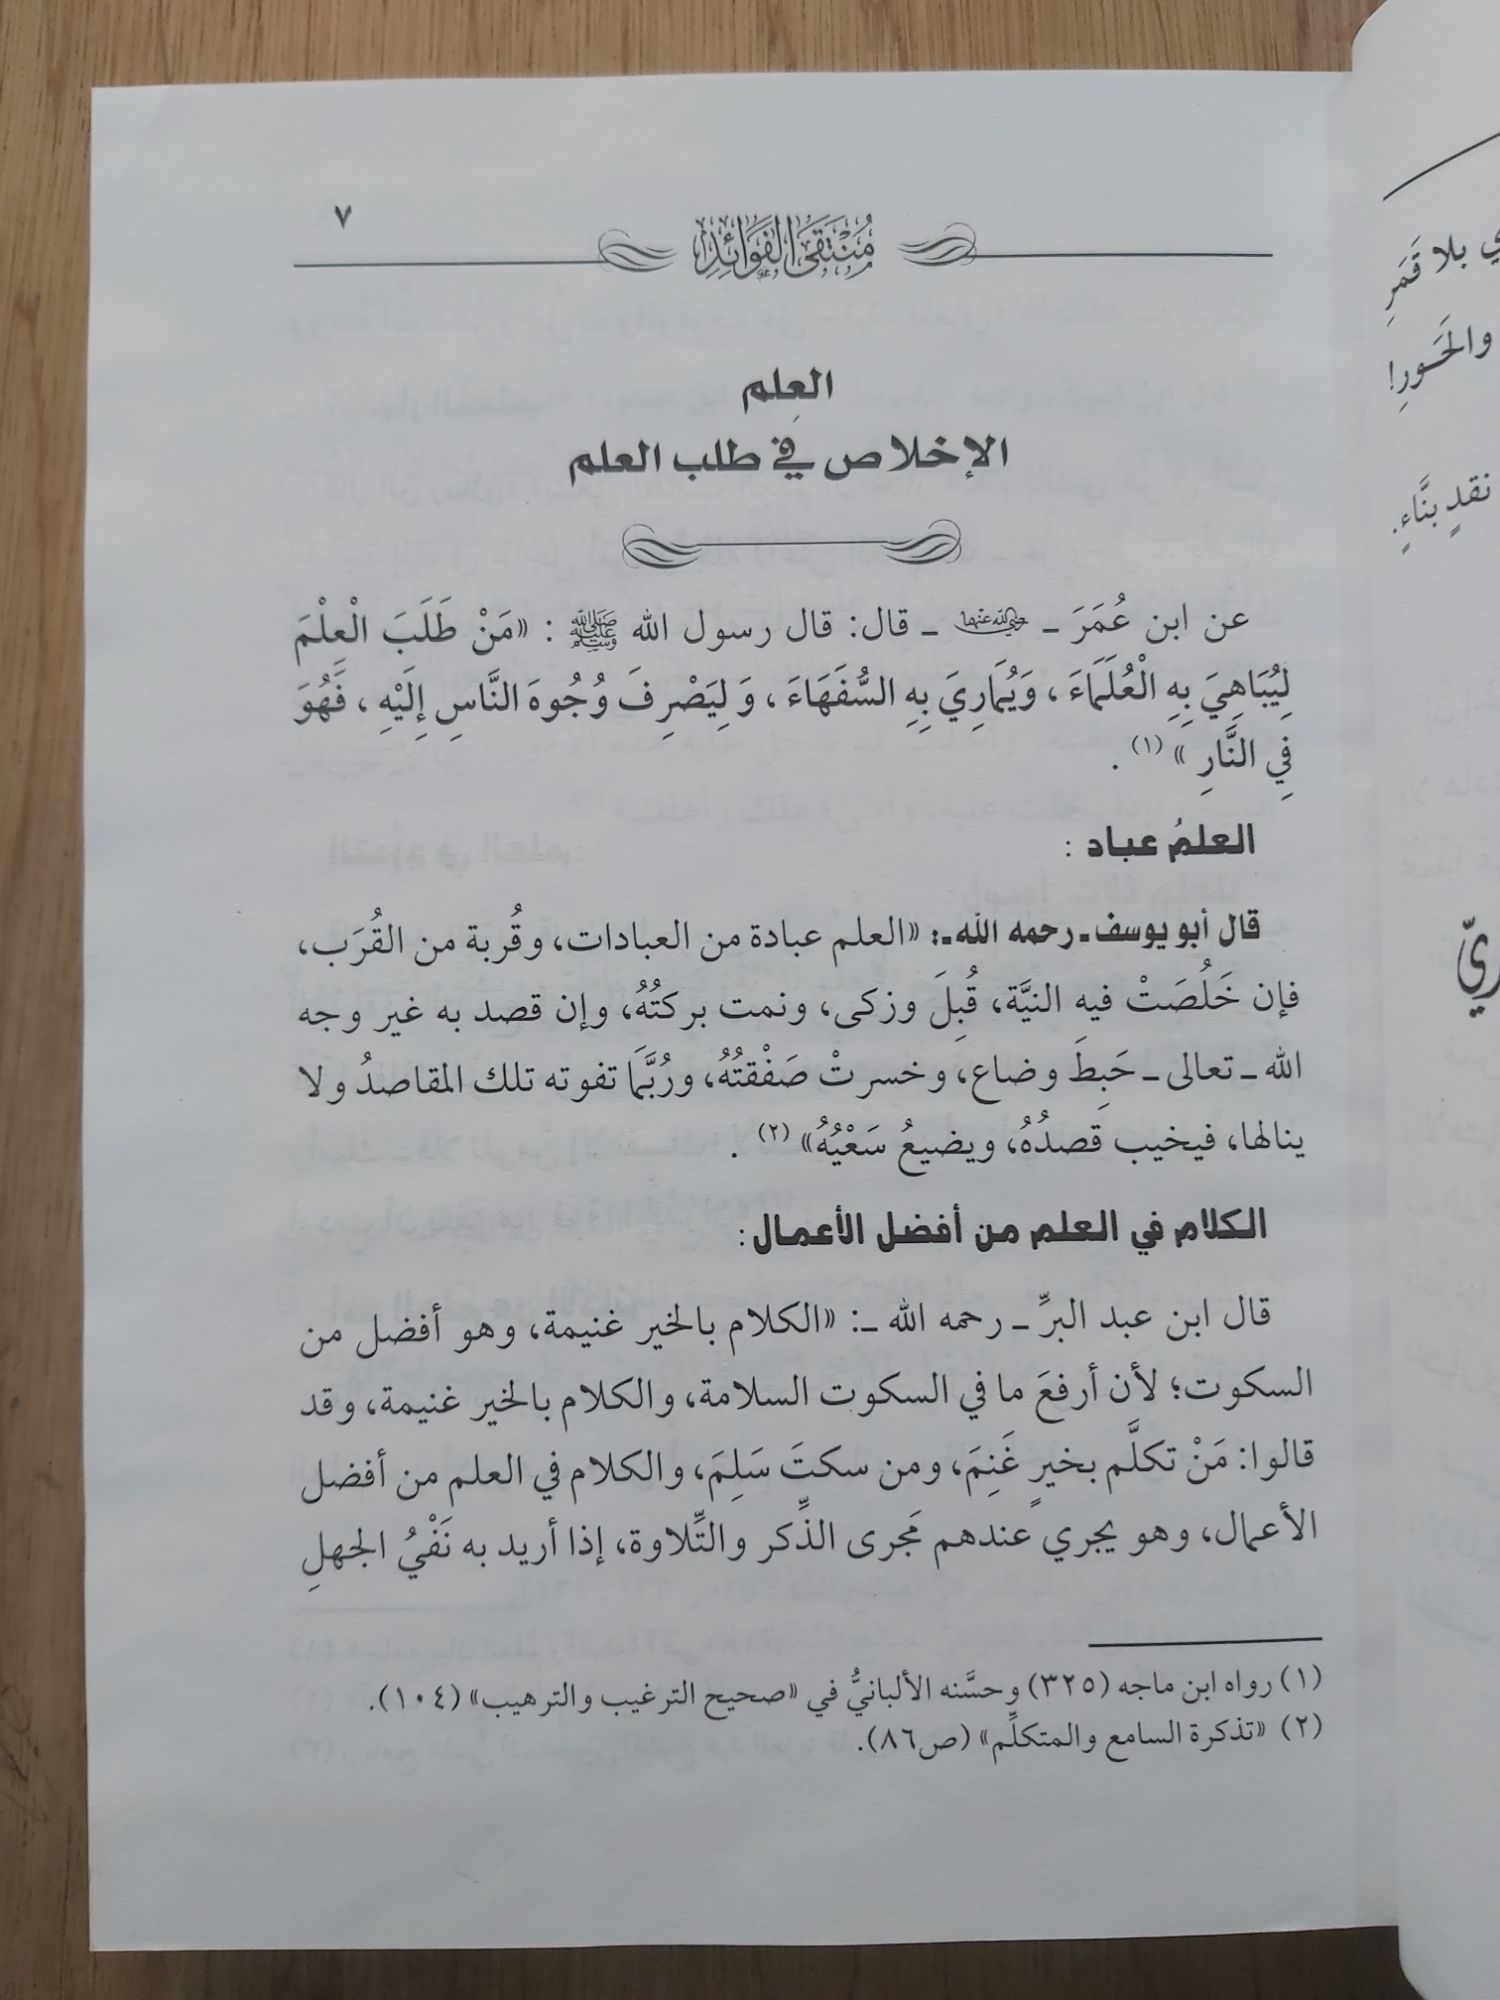 ٧
مُنْتَقَى الفَوَائِدِ
العِلم
الإخلاص في طلب العلم
عن ابن عُمَرَ ـ رضي الله عنهما ـ قال: قال رسول الله ﷺ : «مَنْ طَلَبَ الْعِلْمَ
لِيُبَاهِيَ بِهِ الْعُلَمَاءَ ، وَيُمَارِيَ بِهِ السُّفَهَاءَ ، وَ لِيَصْرِفَ وُجُوهَ النَّاسِ إِلَيْهِ ، فَهُوَ
فِي النَّارِ » (١) .
العلمُ عباد :
قال أبو يوسف ـ رحمه الله ـ: «العلم عبادة من العبادات، وقُربة من القُرَب،
فإن خَلُصَتْ فيه النيَّة، قُبِلَ وزكى، ونمت بركتُهُ، وإن قصد به غير وجه
الله ـ تعالى ـ حَبِطَ وضاع، وخسرتْ صَفْقتُهُ، ورُبَّمَا تفوته تلك المقاصدُ ولا
ينالها، فيخيب قصدُهُ، ويضيعُ سَعْيُهُ» (٢) .
الكلام في العلم من أفضل الأعمال :
قال ابن عبد البرِّ ـ رحمه الله ـ: «الكلام بالخير غنيمة، وهو أفضل من
السكوت؛ لأن أرفعَ ما في السكوت السلامة، والكلام بالخير غنيمة، وقد
قالوا: مَنْ تكلَّم بخيرٍ غَنِمَ، ومن سكتَ سَلِمَ، والكلام في العلم من أفضل
الأعمال، وهو يجري عندهم مَجرى الذِّكر والتِّلاوة، إذا أريد به نَفْيُ الجهلِ
(١) رواه ابن ماجه (٣٢٥) وحسَّنه الألبانيُّ في «صحيح الترغيب والترهيب» (١٠٤).
(٢) «تذكرة السامع والمتكلِّم» (ص٨٦).
بلا قَمَرِ
والحَورِ!
نقدٍ بنَّاءٍ.